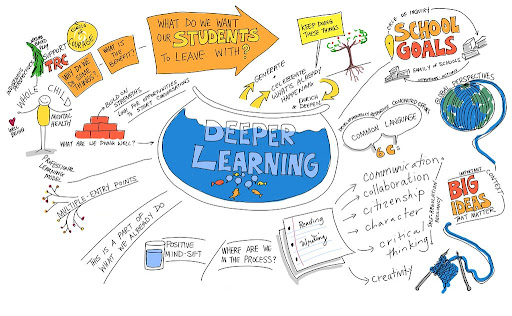 WHAT DO WE WANT
OUR STUDENTS
TO LEAVE WITH?
KEEP DOING
THESE THINGS!
CIRCLE OF INQUIRY
SCHOOL
GOALS
FAMILY OF SCHOOLS
CIRCLE OF
COURAGE
WHAT IS THE
BENEFIT?
WHY DO WE
DO SOME
THINGS?
SUPPORT
TRC
WHOLE CHILD
WELL
BEING
MENTAL
HEALTH
BUILD ON
STRENGTHS
LOOK FOR OPPORTUNITIES
TO START CONVERSATIONS
WHAT ARE WE DOING WELL?
GENERATE
CELEBRATE
WHAT'S ALREADY
HAPPENING
ENRICH
& DEEPEN
GLOBAL PERSPECTIVES
COMMON LANGUAGE
6 C's
DEEPER
LEARNING
PROFESSIONAL
LEARNING
MODEL
MULTIPLE-ENTRY POINTS
THIS IS A PART OF
WHAT WE ALREADY DO
POSITIVE
MIND-SET
WHERE ARE WE
IN THE PROCESS?
Reading
Writing
communication
collaboration
citizenship
character
critical
thinking
creativity
SELF-REGULATION
RESILIENCY
IMPORTANT
CONTEXT
BIG
IDEAS
THAT MATTER